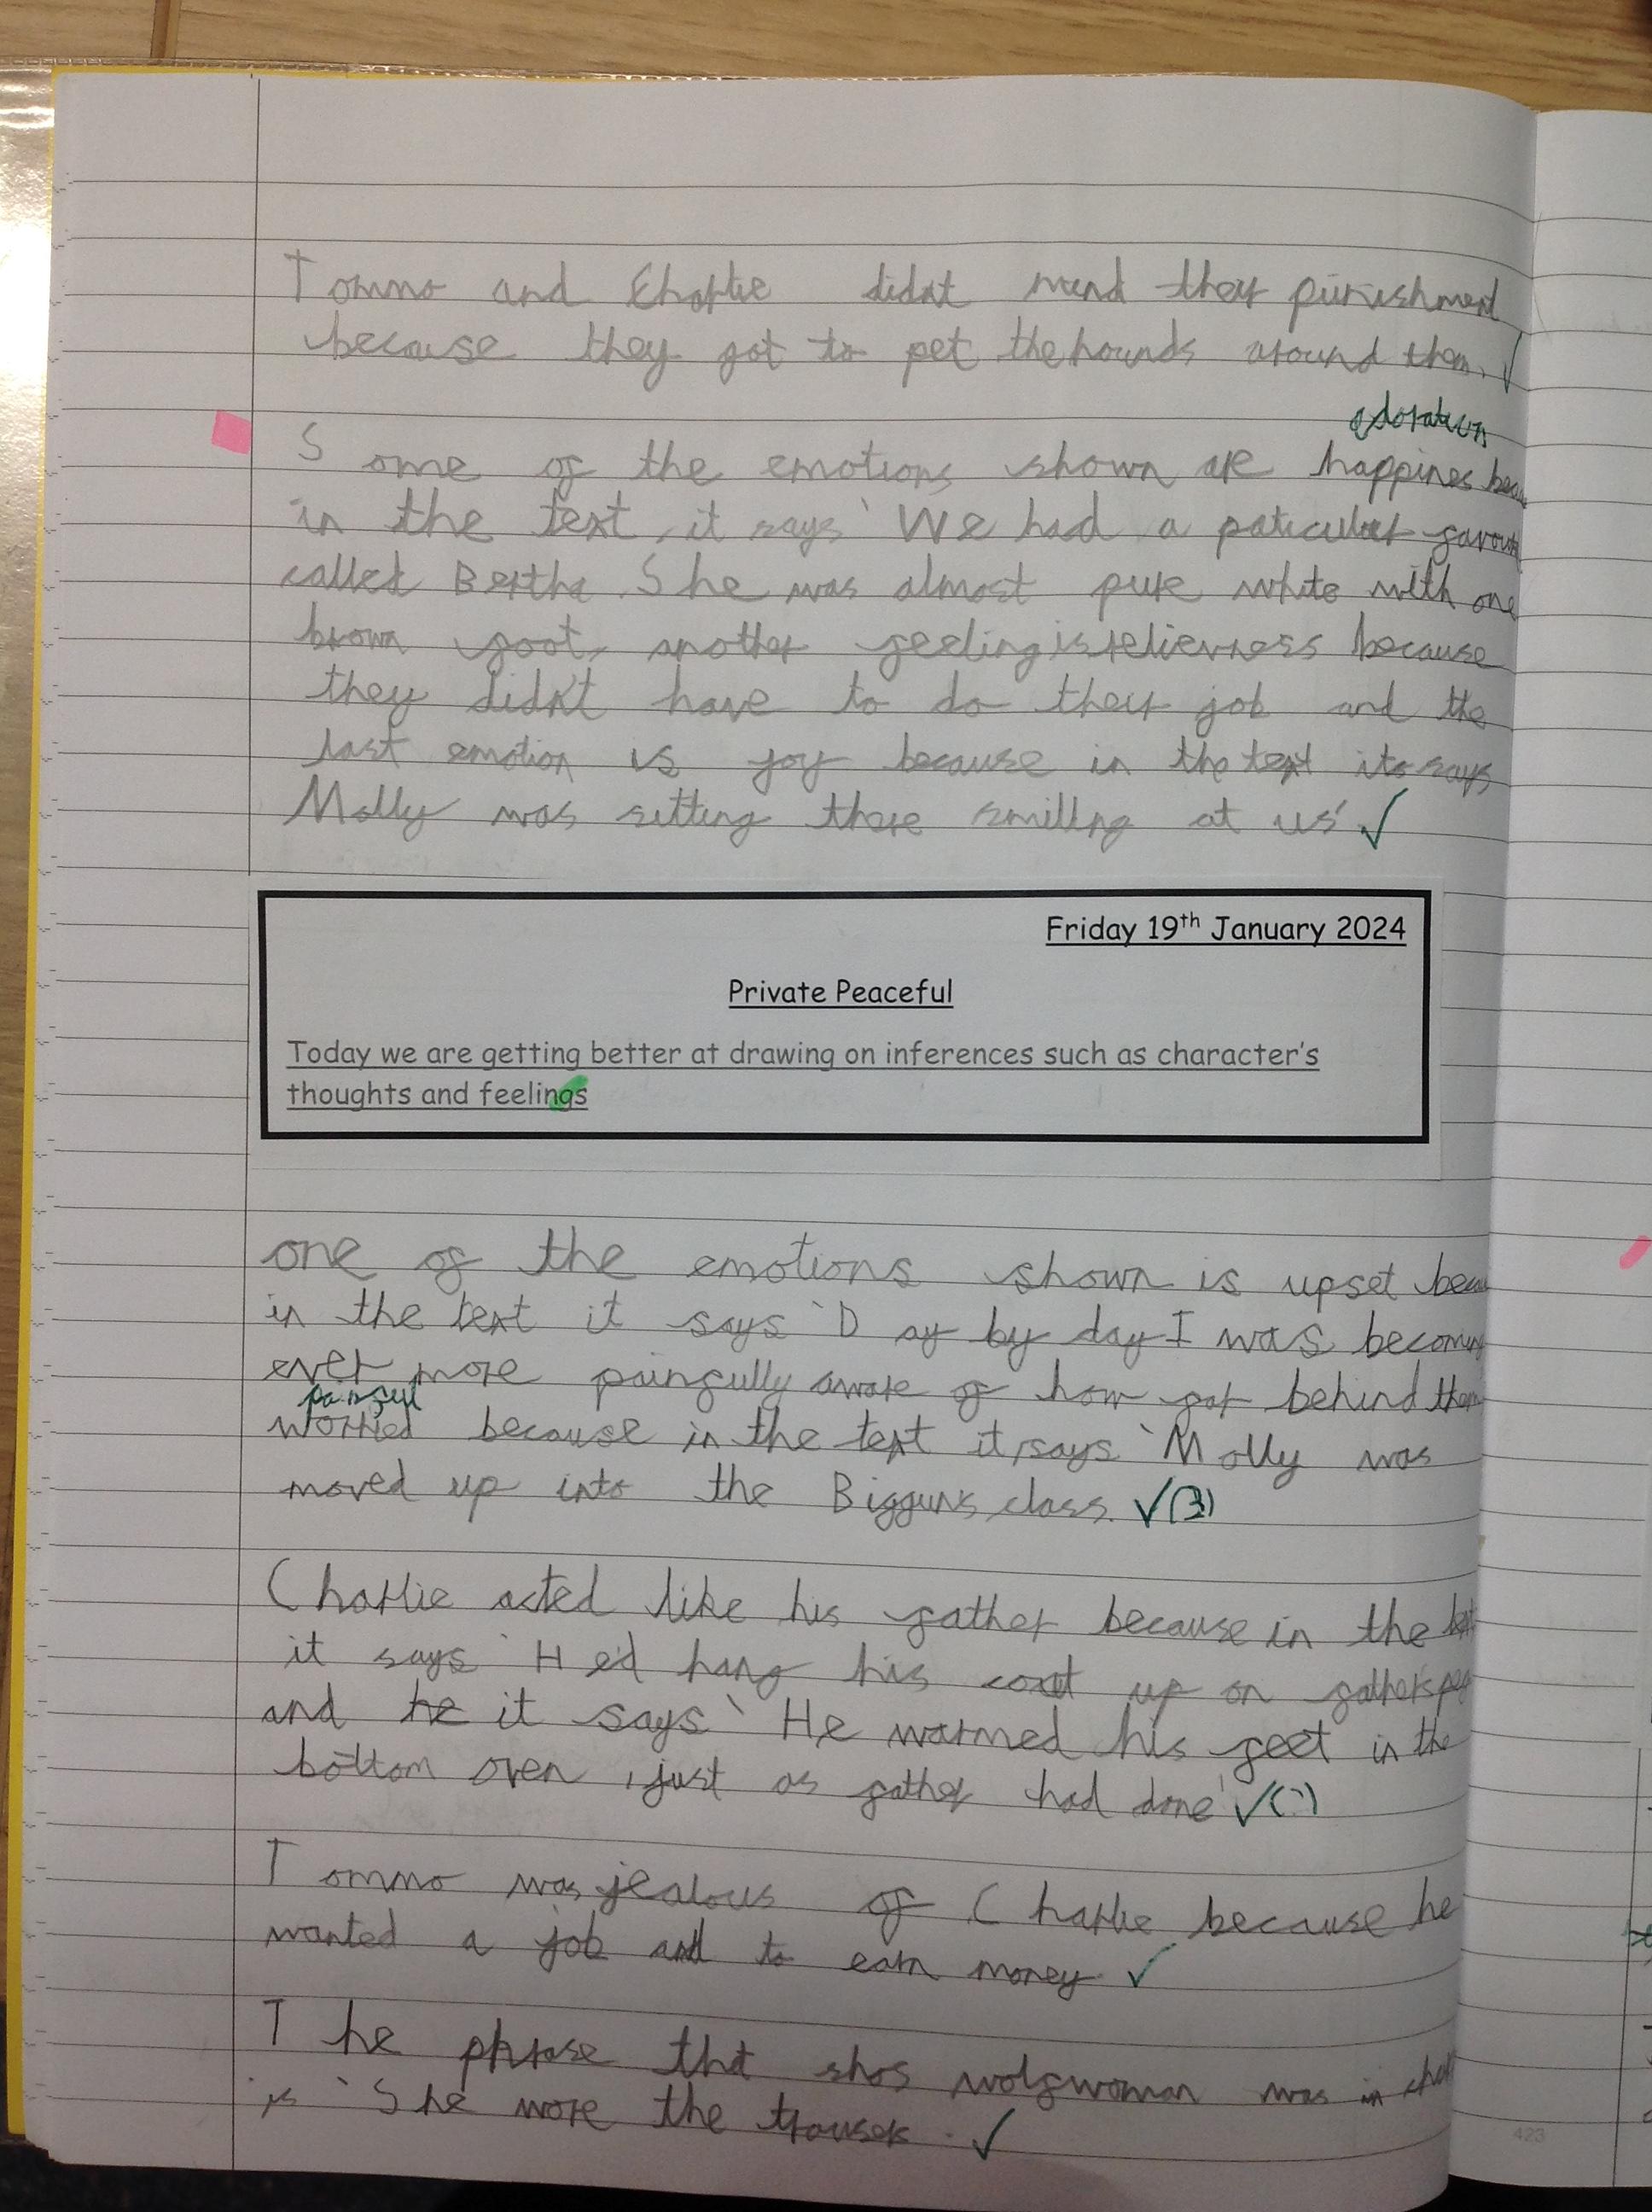 Tommo and Charlie didn't mind their punishment
because they got to pet the hounds around them.
adoration
Some of the emotions shown are happines
in the text, it says 'We had a paticular
called Bertha. She was almost pure white with one
brown foot, another feeling is relieveness because
they didn't have to do their job and the
last emotion is joy because in the text its says
Molly was sitting there smiling at us'
Friday 19th January 2024
Private Peaceful
Today we are getting better at drawing on inferences such as character's
thoughts and feelings
one of the emotions shown is upset
in the text it says 'Day by day I was becoming
ever more painfully aware of how far behind them
painful
worried because in the text it says 'Molly was
moved up into the Bigguns class. (3)
Charlie acted like his father because in the text
it says 'He'd hang his coat up on fathers peg
and he it says 'He warmed his feet in the
bottom oven, just as father had done'
Tommo was jealous of Charlie because he
wanted a job and to earn money
The phrase that shos wolfwoman was in
is 'She wore the trousers.
423